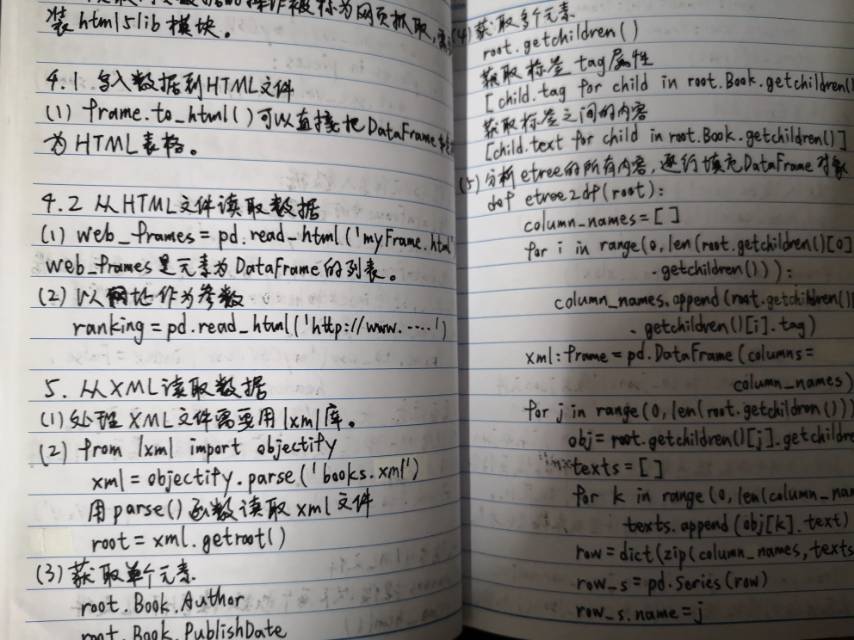 的操作被称为网页抓取,
装html5lib模块。
4.1 写入数据到HTML文件
(1) frame.to_html()可以直接把DataFrame转
为HTML表格。
4.2 从HTML文件读取数据
(1) web_frames = pd.read_html('myFrame.html'
web_frames是元素为DataFrame的列表。
(2) 以网址作为参数
ranking = pd.read_html('http://www.....')
5. 从XML读取数据
(1) 处理XML文件需要用lxml库。
(2) from lxml import objectify
xml = objectify.parse('books.xml')
用parse()函数读取xml文件
root = xml.getroot()
(3) 获取单个元素
root.Book.Author
root.Book.PublishDate
(4) 获取多个元素
root.getchildren()
获取标签tag属性
[child.tag for child in root.Book.getchildren()
获取标签之间的内容
[child.text for child in root.Book.getchildren()]
(5) 分析etree的所有内容,逐行填充DataFrame对象
def etree2df(root):
column_names = []
for i in range(0, len(root.getchildren()[0]
.getchildren())):
column_names.append(root.getchildren()
.getchildren()[i].tag)
xml:frame = pd.DataFrame(columns=
column_names)
for j in range(0, len(root.getchildren()))
obj = root.getchildren()[j].getchildre
texts = []
for k in range(0, len(column_na
texts.append(obj[k].text)
row = dict(zip(column_names, texts
row_s = pd.Series(row)
row_s.name = j